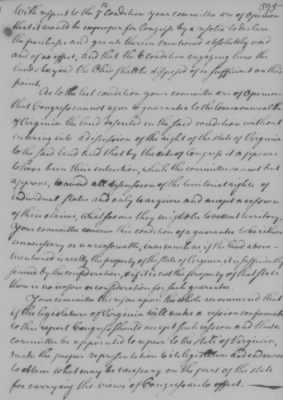 595
With respect to the 7th Condition your committee are of Opinion
that it would be improper for Congress by a resolve to declare
the purchases and grants therein mentioned absolutely void
and of no effect, and that the 6th condition engaging how the
lands beyond the Ohio shall be disposed of is sufficient on this
point.
As to the last condition your committee are of Opinion
that Congress cannot agree to guarantee to the Commonwealth
of Virginia the land described in the said condition without
entering into a discussion of the right of the state of Virginia
to the said land and that by the acts of Congress it appears
to have been their intention, which the committee cannot but
approve, to avoid all discussion of the territorial rights of
individual states and only to recommend and accept a cession
of their claims, whatsoever they might be to vacant territory.
Your committee conceive this condition of a guarantee to be either
unnecessary or unreasonable, inasmuch as if the land above
mentioned is really the property of the state of Virginia, it is sufficiently
secured by the confederation, & if it is not the property of that state
there is no reason or consideration for such guarantee.
Your committee therefore upon the whole recommend that
if the legislature of Virginia will make a cession conformable
to this report Congress should accept such cession and that a
committee be appointed to repair to the state of Virginia,
make the proper representation to its legislature and endeavour
to obtain what may be necessary on the part of the state
for carrying the views of Congress into effect.